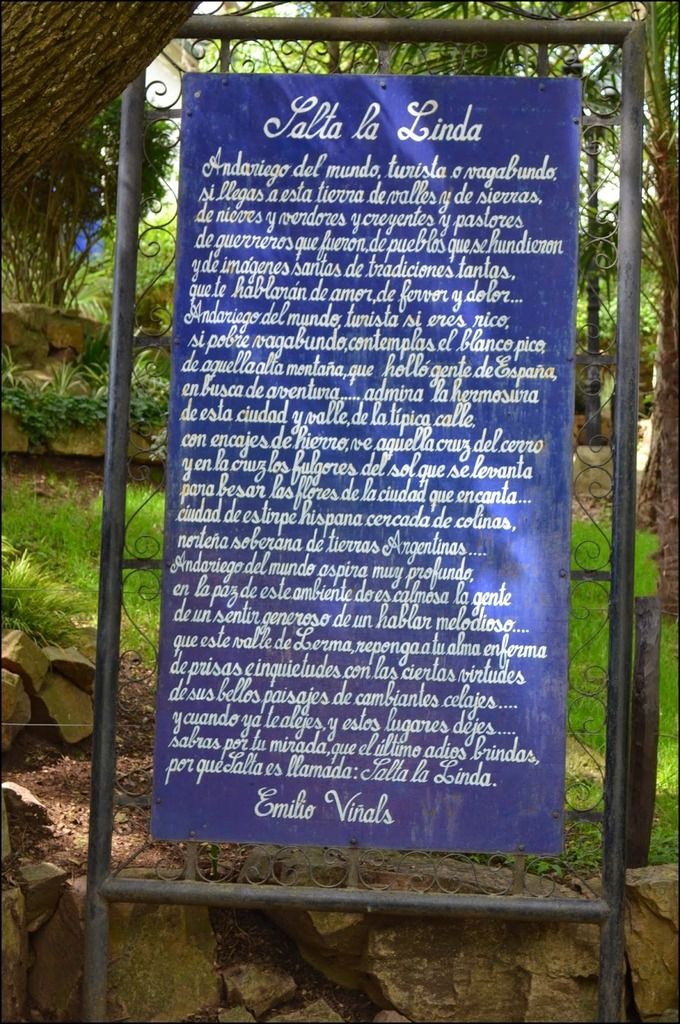 Salta la Linda
Andariego del mundo, turista o vagabundo,
si llegas a esta tierra de valles y de sierras,
de nieves y verdores y creyentes y pastores
de guerreros que fueron, de pueblos que se hundieron
y de imágenes santas de tradiciones tantas,
que te hablarán de amor, de fervor y dolor...
Andariego del mundo, turista si eres rico,
si pobre vagabundo, contemplas el blanco pico,
de aquella alta montaña, que holló gente de España,
en busca de aventura..... admira la hermosura
de esta ciudad y valle, de la típica calle,
con encajes de hierro, ve aquella cruz del cerro
y en la cruz los fulgores del sol que se levanta
para besar las flores de la ciudad que encanta...
ciudad de estirpe hispana cercada de colinas,
norteña soberana de tierras Argentinas....
Andariego del mundo aspira muy profundo,
en la paz de este ambiente do es calmosa la gente
de un sentir generoso de un hablar melodioso....
que este valle de Lerma, reponga a tu alma enferma
de prisas e inquietudes con las ciertas virtudes
de sus bellos paisajes de cambiantes celajes....
y cuando ya te alejes, y estos lugares dejes....
sabras por tu mirada, que el último adios brindas,
por que Salta es llamada: Salta la Linda.
Emilio Viñals